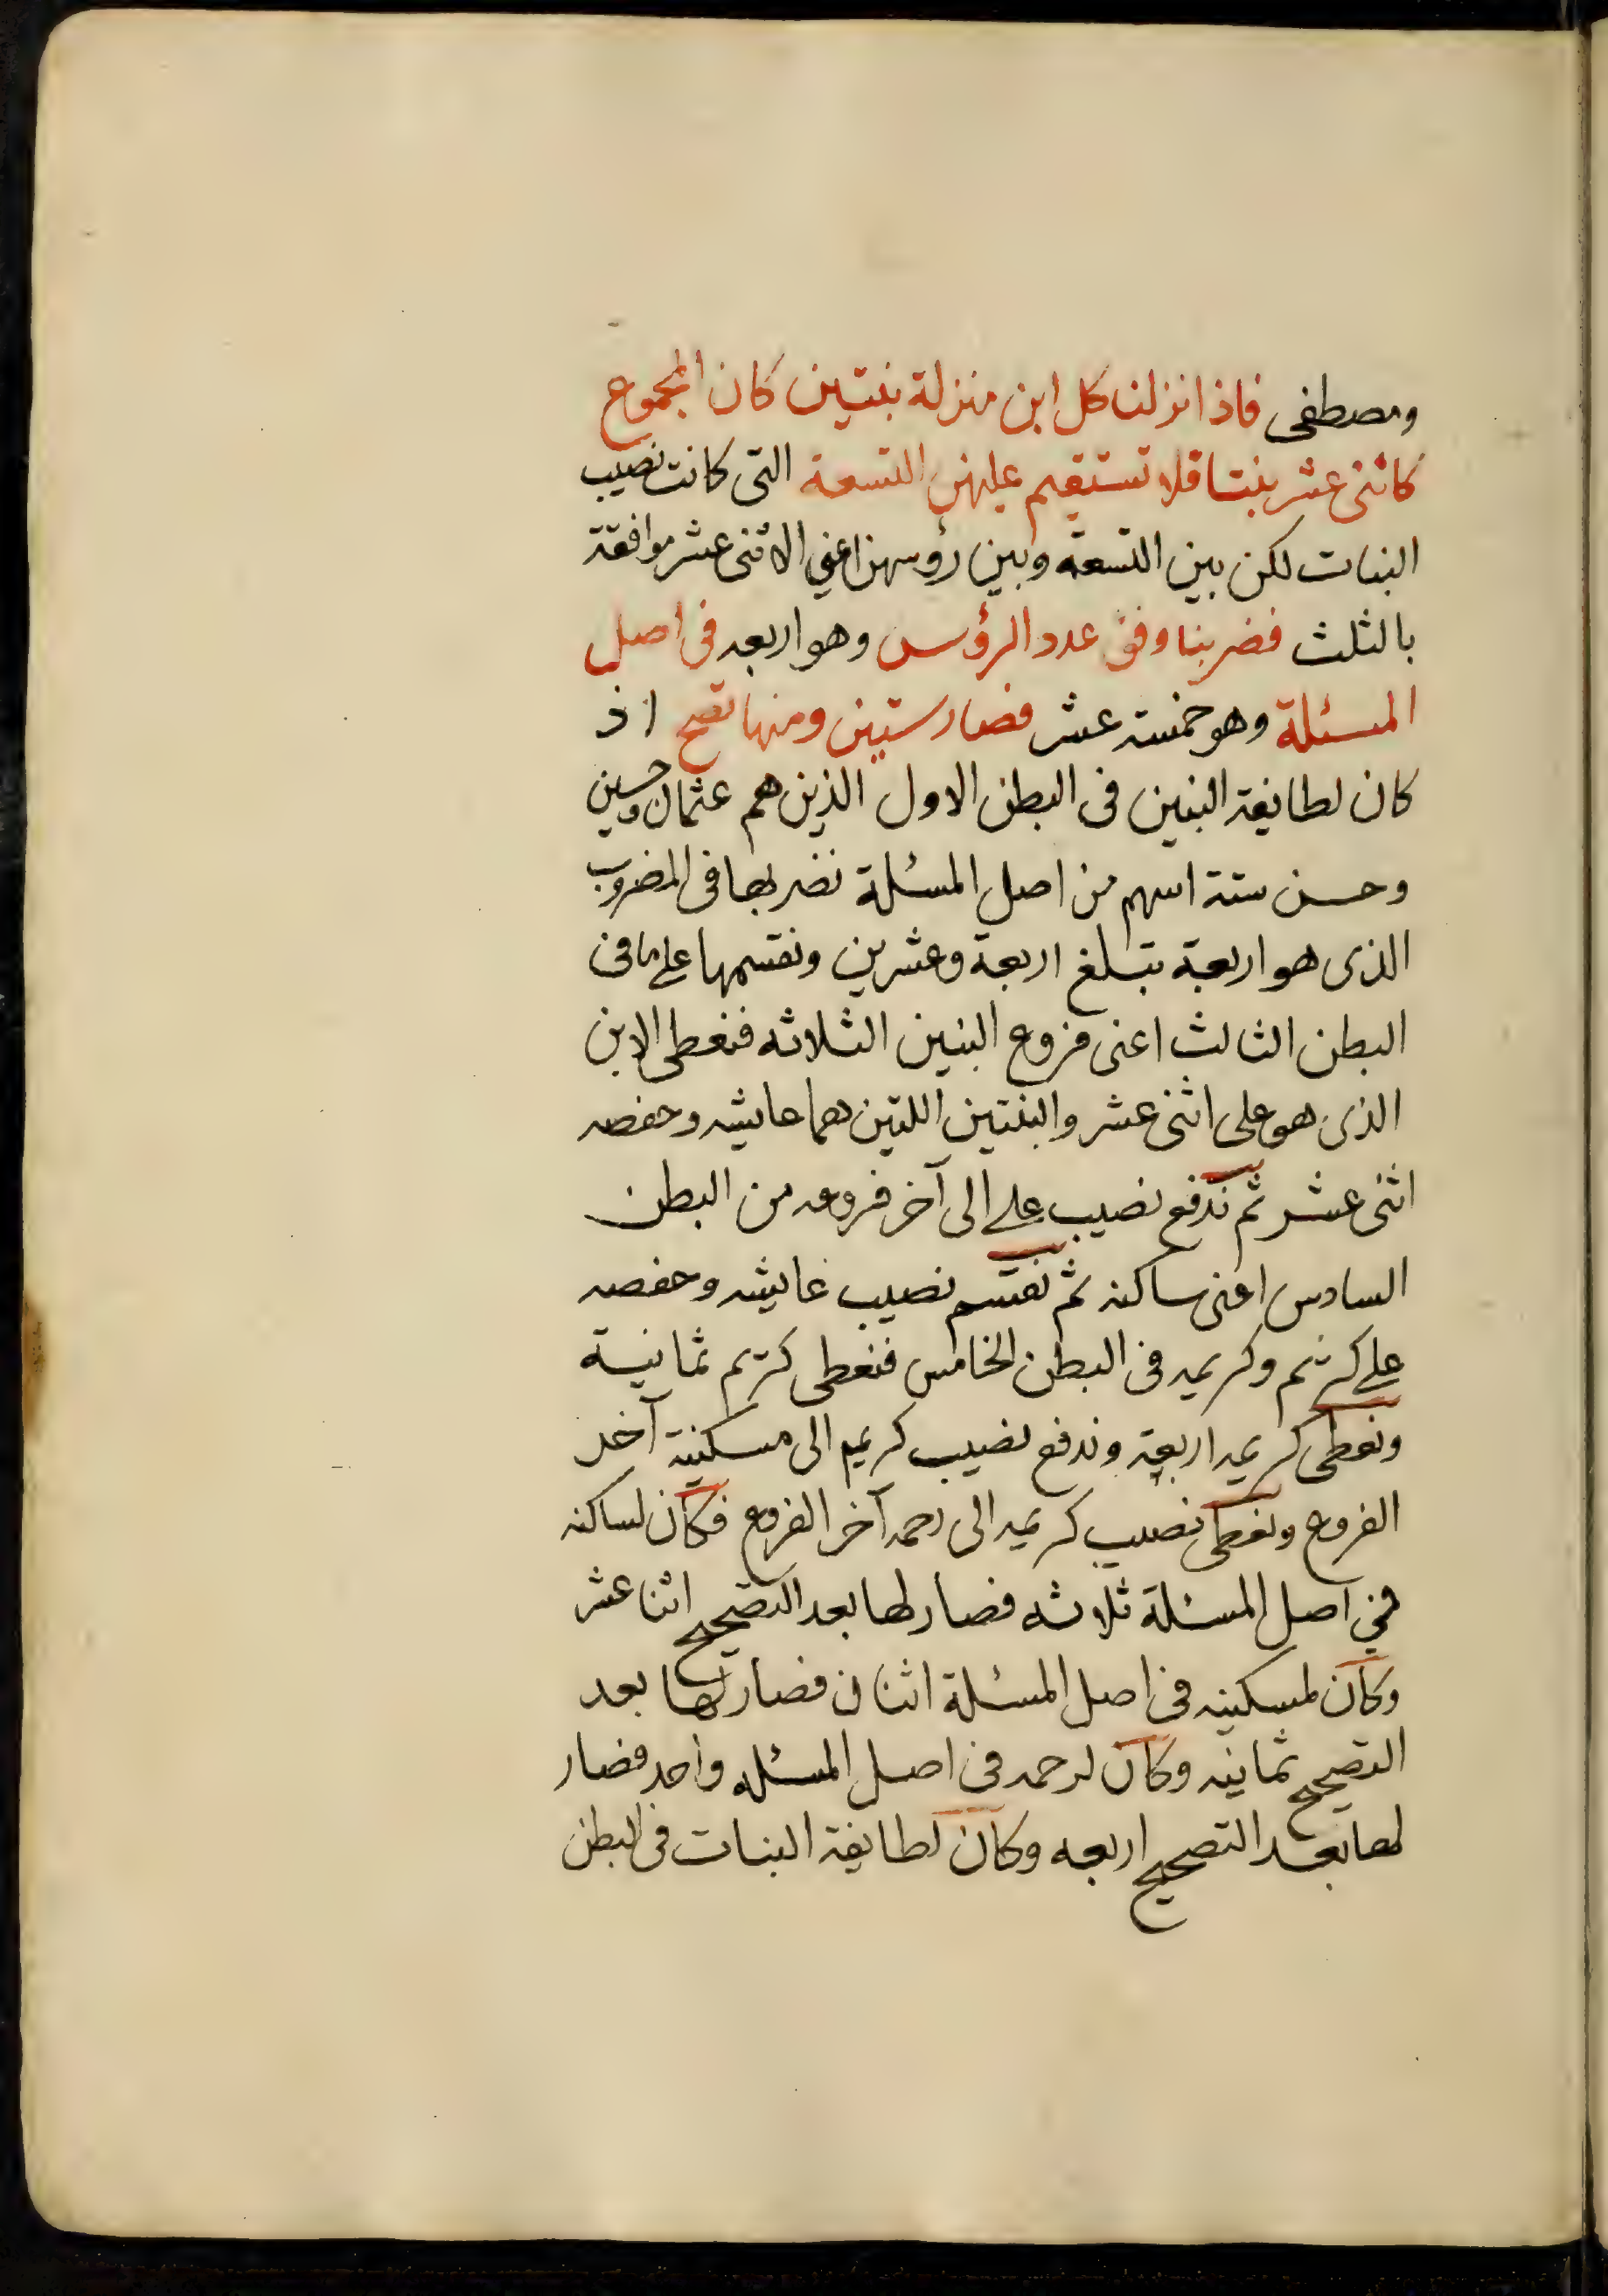 ومصطفى فاذا نزلنا كل ابن منزلة بنتين كان المجموع
كاثنى عشر بنتا فلا تستقيم عليهن التسعة التى كانت نصيب
البنات لكن بين التسعة وبين رؤسهن اعني الاثنى عشر موافقة
بالثلث فضربنا وفق عدد الرؤس وهو اربعه فى اصل
المسئلة وهو خمسة عشر فصار ستين ومنها تصح اذ
كان لطايفة البنين فى البطن الاول الذين هم عثمان وحسين
وحسن ستة اسهم من اصل المسئلة نضربها فى المضروب
الذى هو اربعة تبلغ اربعة وعشرين ونقسمها على ما فى
البطن الثالث اعنى فروع البنين الثلاثه فنعطى الابن
الذى هو على اثنى عشر والبنتين اللتين هما عايشه وحفصه
اثنى عشر ثم ندفع نصيب على الى آخر فروعه من البطن
السادس اعنى ساكنه ثم نقسم نصيب عايشه وحفصه
على كريم وكريمه فى البطن الخامس فنعطى كريم ثمانية
ونعطى كريمه اربعة وندفع نصيب كريم الى مسكينة آخر
الفروع ونعطى نصيب كريمه الى رحمه آخر الفروع فكان لساكنه
في اصل المسئلة ثلاثه فصار لها بعد التصحيح اثنا عشر
وكان لمسكينه فى اصل المسئلة اثنان فصار لها بعد
التصحيح ثمانيه وكان لرحمه فى اصل المسئله واحد فصار
لها بعد التصحيح اربعه وكان لطايفة البنات فى البطن